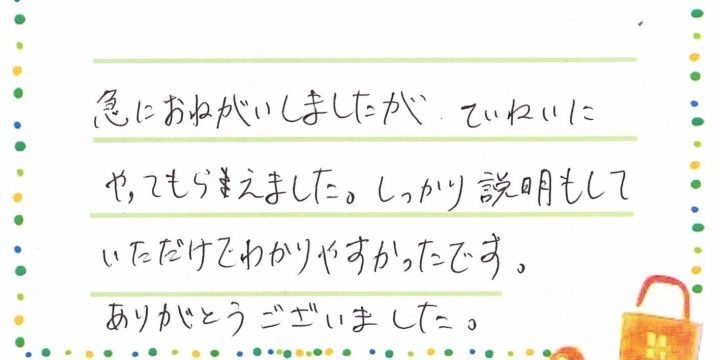 急におねがいしましたが、ていねいに
やってもらえました。しっかり説明もして
いただけてわかりやすかったです。
ありがとうございました。